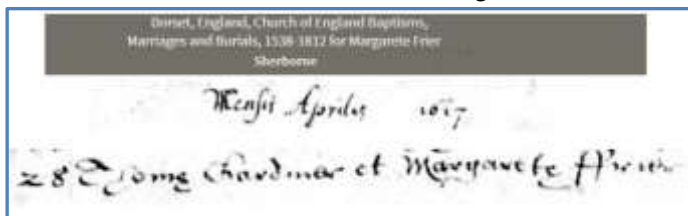 Dorset, England, Church of England Baptisms,
Marriages and Burials, 1538-1812 for Margarete Frier
Sherborne
Mensis Aprilis 1617
28 Thome Chardmar et Margarete